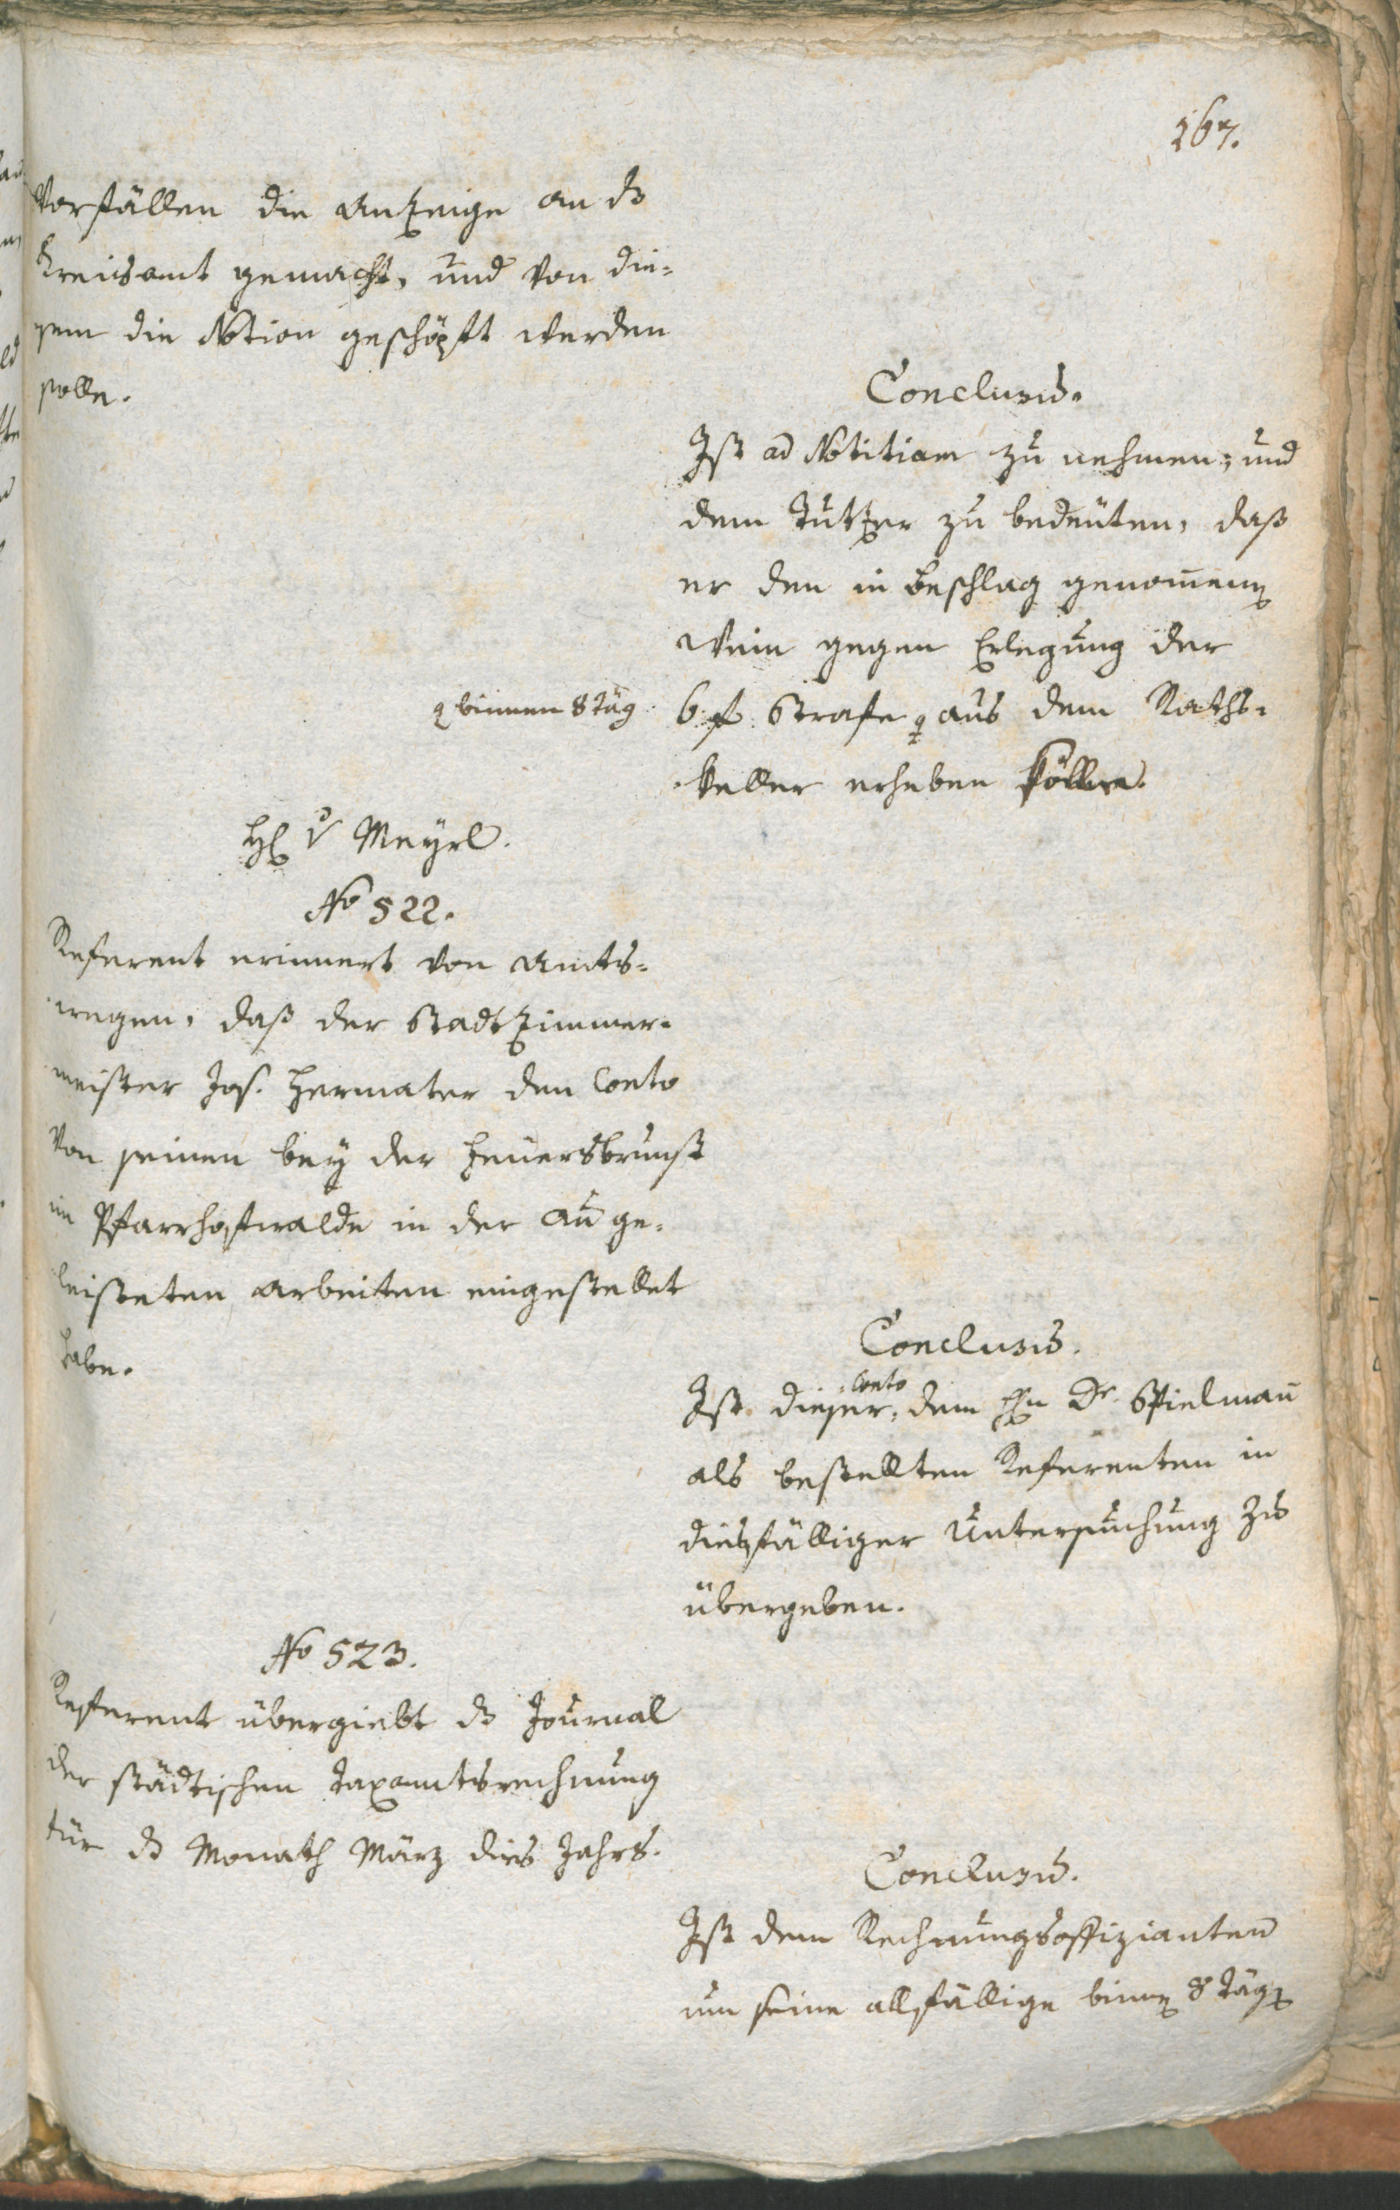 167.
Vorfällen die Anzeige an ds
Kreisamt gemacht, und von die=
sem die Notion geschöpft werden
solle.
Conclusum.
Ist ad Notitiam zu nehmen; und
dem Tutzer zu bedeuten, daß
er den in Beschlag genom̅enen
Wein gegen Erlegung der
binnen 8 Täg
6 f Strafe aus dem Raths=
keller erheben
H v Meyrl.
No 522.
Referent erinnert von Amts=
wegen, daß der Stadtzimmer=
meister Jos. Hermater den Conto
von seinen bey der Feuersbrunst
im Pfarrhofwalde in der Au ge=
leisteten Arbeiten eingestellet
habe.
Conclusum.
Conto
Ist dieser, dem Hn Dr Spielman̅
als bestellten Referenten in
diesfälliger Untersuchung zu
übergeben.
No 523.
Referent übergiebt ds Journal
der städtischen Taxamtsrechnung
für ds Monath März dies Jahrs.
Conclusum.
Ist dem Rechnungsoffizianten
um seine allfällige binnen 8 Tägen